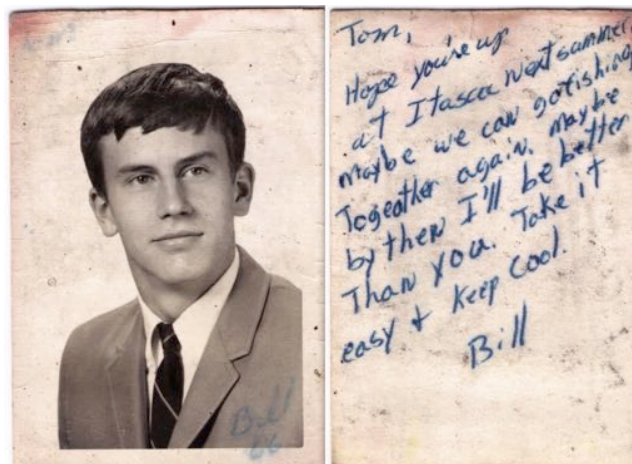 Bill
66
Tom,
Hope you're up
at Itasca next summer,
maybe we can go fishing
Togeather again. maybe
by then I'll be better
Than you. Take it
easy + keep cool.
Bill